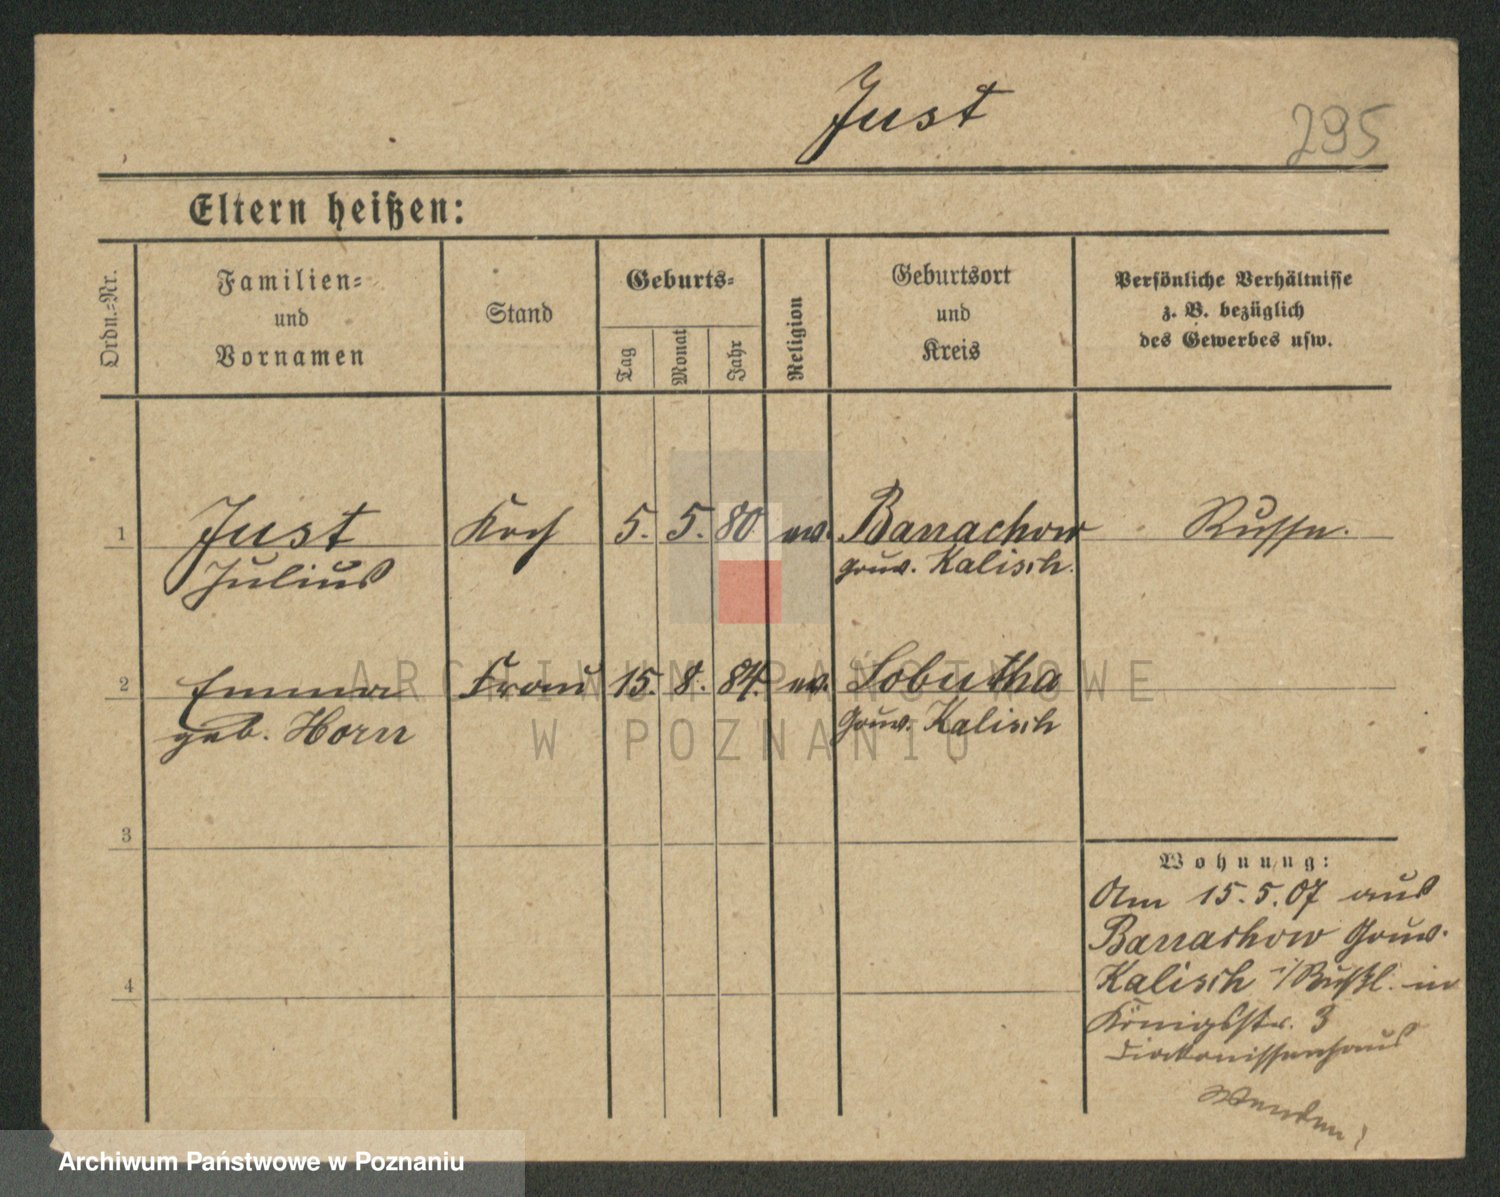 Just
295
Eltern heißen:
Ordn.-Nr.
Familien-
und
Vornamen
Stand
Geburts-
Tag
Monat
Jahr
Religion
Geburtsort
und
Kreis
Persönliche Verhältnisse
z. B. bezüglich
des Gewerbes usw.
1
Just
Julius
Koch
5.
5.
80
ev.
Barrachow
Gouv. Kalisch.
Russe.
2
Emma
geb. Horn
Frau
15.
8.
84.
ev.
Sobutha
Gouv. Kalisch
3
4
Wohnung:
Am 15.5.07 aus
Barrachow Gouv.
Kalisch i/Rußl. in
Königsstr. 3
Diakonissenhaus
Wenden!
ARCHIWUM PAŃSTWOWE
W POZNANIU
Archiwum Państwowe w Poznaniu